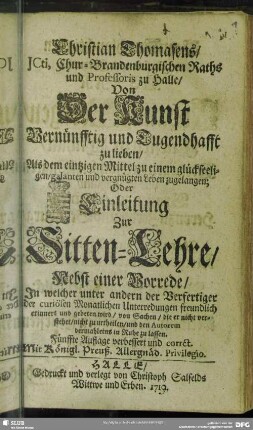 Christian Thomasens/
JCti, Chur-Brandenburgischen Raths
und Professoris zu Halle/
Von
Der Kunst
Vernünfftig und Tugendhafft
zu lieben/
Als dem eintzigen Mittel zu einem glückseeli-
gen/galanten und vergnügten Leben zugelangen;
Oder
Einleitung
Zur
Sitten-Lehre/
Nebst einer Vorrede/
In welcher unter andern der Verfertiger
der curiösen Monatlichen Unterredungen freundlich
erinnert und gebeten wird/ von Sachen/ die er nicht ver-
stehet/nicht zu urtheilen/und den Autorem
dermahleins in Ruhe zu lassen.
Fünffte Auflage verbessert und corrêt.
Mit Königl. Preuß. Allergnäd. Privilegio.
HALLE/
Gedruckt und verlegt von Christoph Salfelds
Wittwe und Erben. 1719.
SLUB
DFG